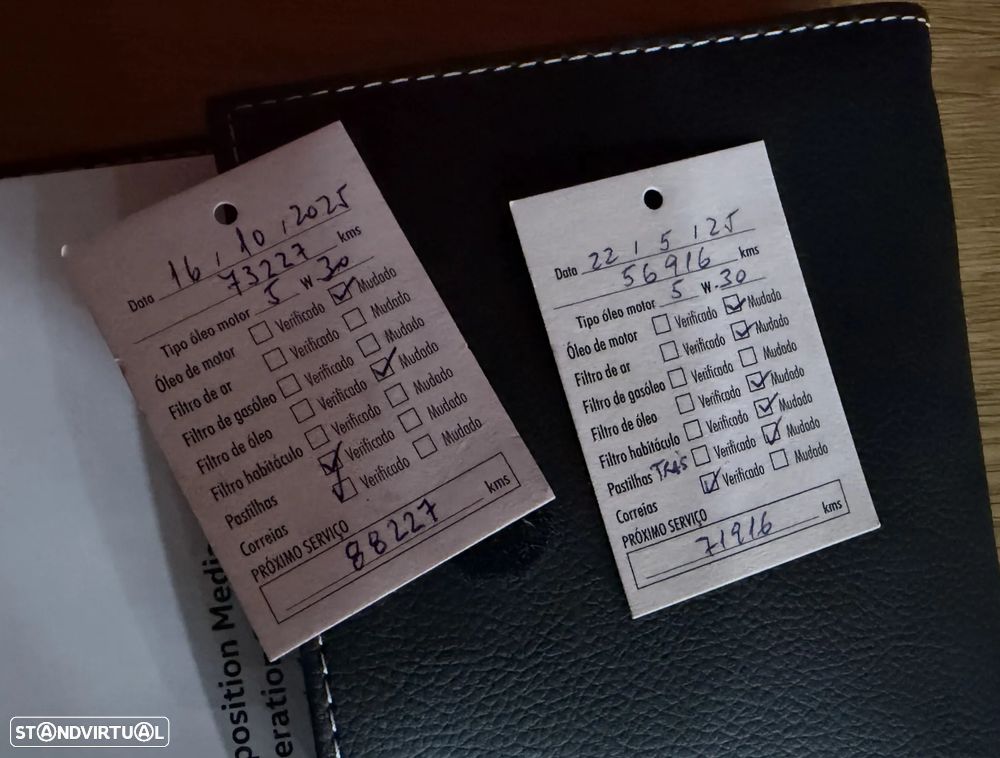 Data 16 / 10 / 2025
73227 kms
Tipo óleo motor 5 W-30
Óleo de motor Verificado Mudado
Filtro de ar Verificado Mudado
Filtro de gasóleo Verificado Mudado
Filtro de óleo Verificado Mudado
Filtro habitáculo Verificado Mudado
Pastilhas Verificado Mudado
Correias Verificado Mudado
PRÓXIMO SERVIÇO
88227 kms
Data 22 / 5 / 25
56916 kms
Tipo óleo motor 5 W-30
Óleo de motor Verificado Mudado
Filtro de ar Verificado Mudado
Filtro de gasóleo Verificado Mudado
Filtro de óleo Verificado Mudado
Filtro habitáculo Verificado Mudado
Pastilhas TRÁS Verificado Mudado
Correias Verificado Mudado
PRÓXIMO SERVIÇO
71916 kms
position Medi
eration
STANDVIRTUAL